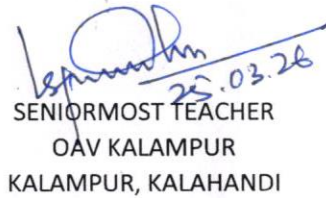 25.03.26
SENIORMOST TEACHER
OAV KALAMPUR
KALAMPUR, KALAHANDI